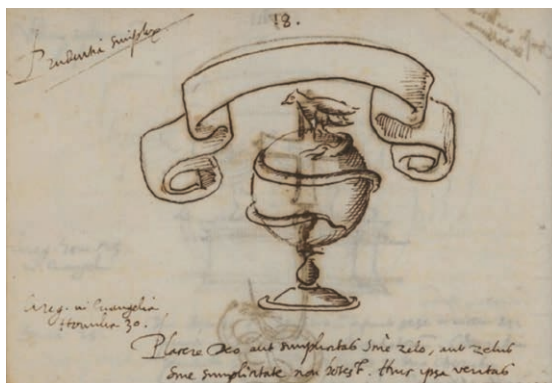 18.
Prudentia simplex
Greg. in Euangelia
Homilia 30.
Placere Deo aut simplicitas sine zelo, aut zelus
sine simplicitate non potest. Hinc ipsa veritas